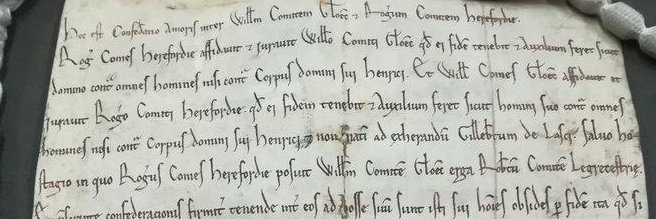 Hec est Confederatio Amoris inter Will'm Comitem Gloec' ⁊ Rog'um Comitem Herefordie.
Rog' Comes herefordie affidavit ⁊ juravit Will'o Comiti Gloec' qd' ei fidē tenebit ⁊ Auxilium feret sicut
domino cont' omnes homines nisi cont' Corpus domini sui henrici. Et Will' Comes Gloec' affidavit et
juravit Rog'o Comiti herefordie. qd' ei fidem tenebit ⁊ Auxilium feret sicut homini suo cont' omnes
homines nisi cont' Corpus domini sui henrici. ⁊ non ad exherandū Gillebtum de Lasci. salvo ho-
stagio in quo Rog'us Comes herefordie posuit Will'm Comitē Gloec' erga Rob'tū Comitē Legrecestrie.
confederacionis firmit' tenende int' eos ad posse suū sunt isti sui hoīes obsides p' fidē ita qd' si